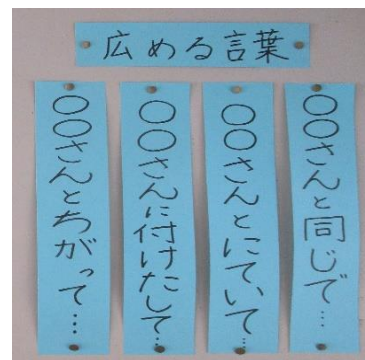 広める言葉
○○さんと同じで…
○○さんとにていて…
○○さんに付けたして…
○○さんとちがって…